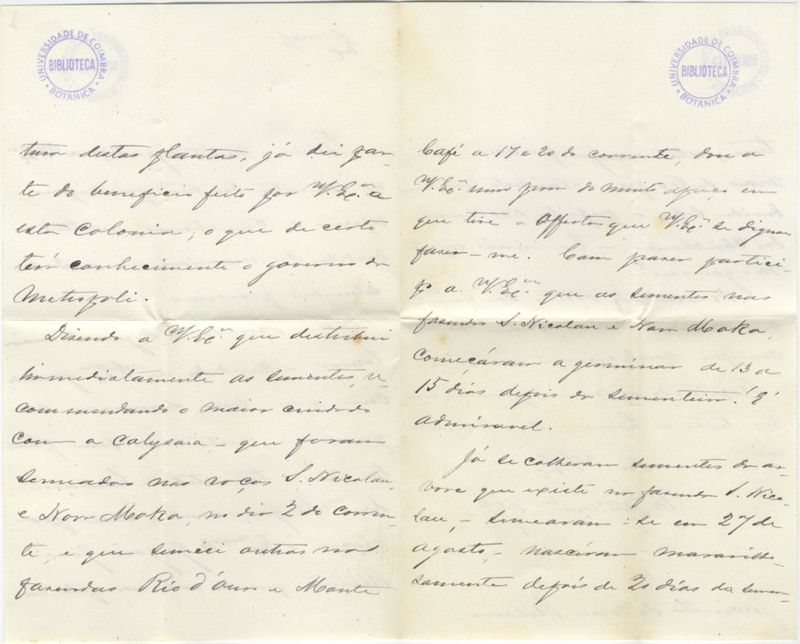 UNIVERSIDADE DE COIMBRA
BIBLIOTECA
BOTANICA
tura destas plantas, já dei par-
te do beneficio feito por V. Exª a
esta Colonia, o que de certo
tem conhecimento o governo da
Metropoli.
Disendo a V. Exª que destribui
immediatamente as sementes, re-
commendando o maior cuidado
com a Calysaia, que foram
semeadas nas roças S. Nicolau,
e Nova Moka, no dia 2 do corren-
te, e que semeei outras nas
fazendas Rio d'Ouro e Monte
UNIVERSIDADE DE COIMBRA
BIBLIOTECA
BOTANICA
Café a 17 e 20 do corrente, dou a
V. Exª uma prova do muito apreço em
que tive a Offerta que V. Exª se dignou
fazer-me. Com prazer partici-
po a V. Exª que as sementes nas
fazendas S. Nicolau e Nova Moka,
começáram a germinar de 13 a
15 dias depois da sementeira! É
admiravel.
Já se colheram sementes da ar-
vore que existe na fazenda S. Nico-
lau, - semearam-se em 27 de
Agosto, - nasceram maravilho-
samente depois de 20 dias da semen-